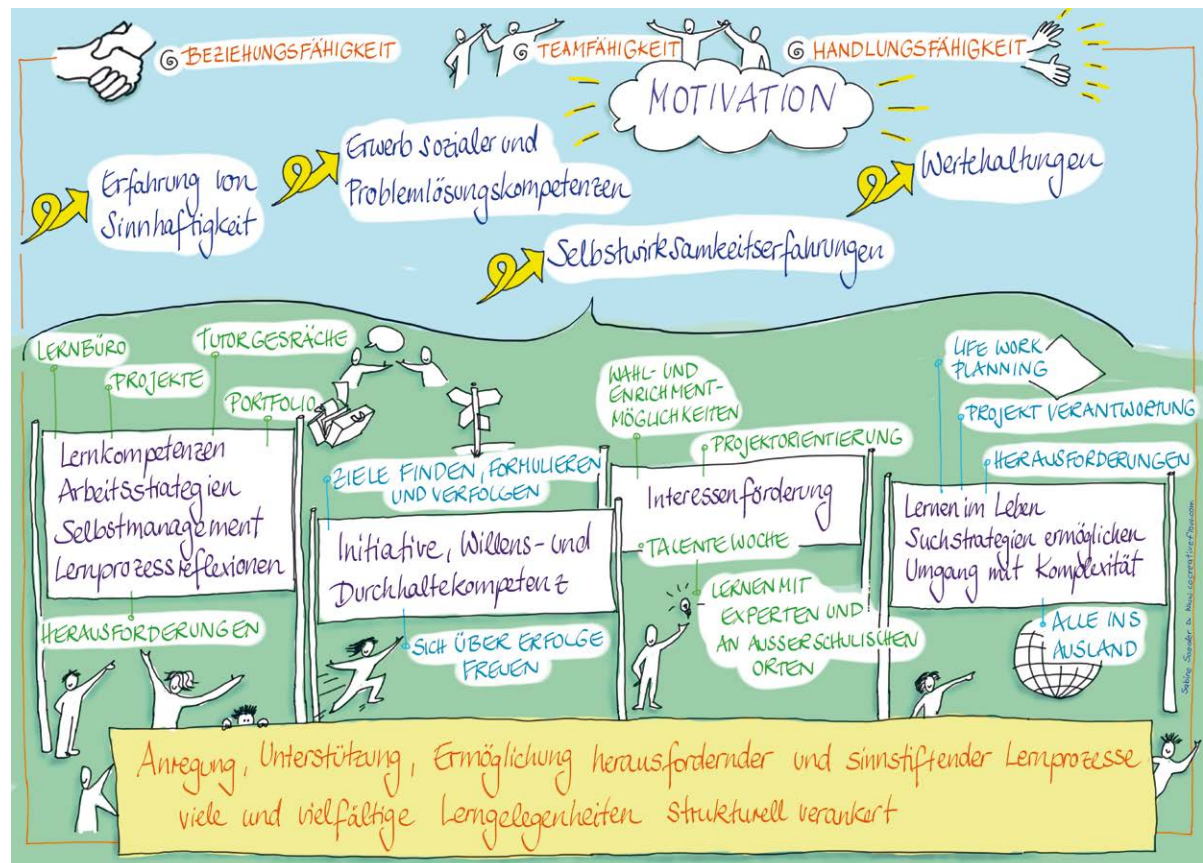 BEZIEHUNGSFÄHIGKEIT
TEAMFÄHIGKEIT
HANDLUNGSFÄHIGKEIT
MOTIVATION
Erfahrung von
Sinnhaftigkeit
Erwerb sozialer und
Problemlösungskompetenzen
Selbstwirksamkeitserfahrungen
Wertehaltungen
LERNBÜRO
PROJEKTE
TUTORGESPRÄCHE
PORTFOLIO
Lernkompetenzen
Arbeitsstrategien
Selbstmanagement
Lernprozessreflexionen
HERAUSFORDERUNGEN
ZIELE FINDEN, FORMULIEREN
UND VERFOLGEN
Initiative, Willens- und
Durchhaltekompetenz
SICH ÜBER ERFOLGE
FREUEN
WAHL- UND
ENRICHMENT-
MÖGLICHKEITEN
PROJEKTORIENTIERUNG
Interessenförderung
TALENTEWOCHE
LERNEN MIT
EXPERTEN UND
AN AUSSERSCHULISCHEN
ORTEN
LIFE WORK
PLANNING
PROJEKT VERANTWORTUNG
HERAUSFORDERUNGEN
Lernen im Leben
Suchstrategien ermöglichen
Umgang mit Komplexität
ALLE INS
AUSLAND
Anregung, Unterstützung, Ermöglichung herausfordernder und sinnstiftender Lernprozesse
viele und vielfältige Lerngelegenheiten strukturell verankert
Sabine